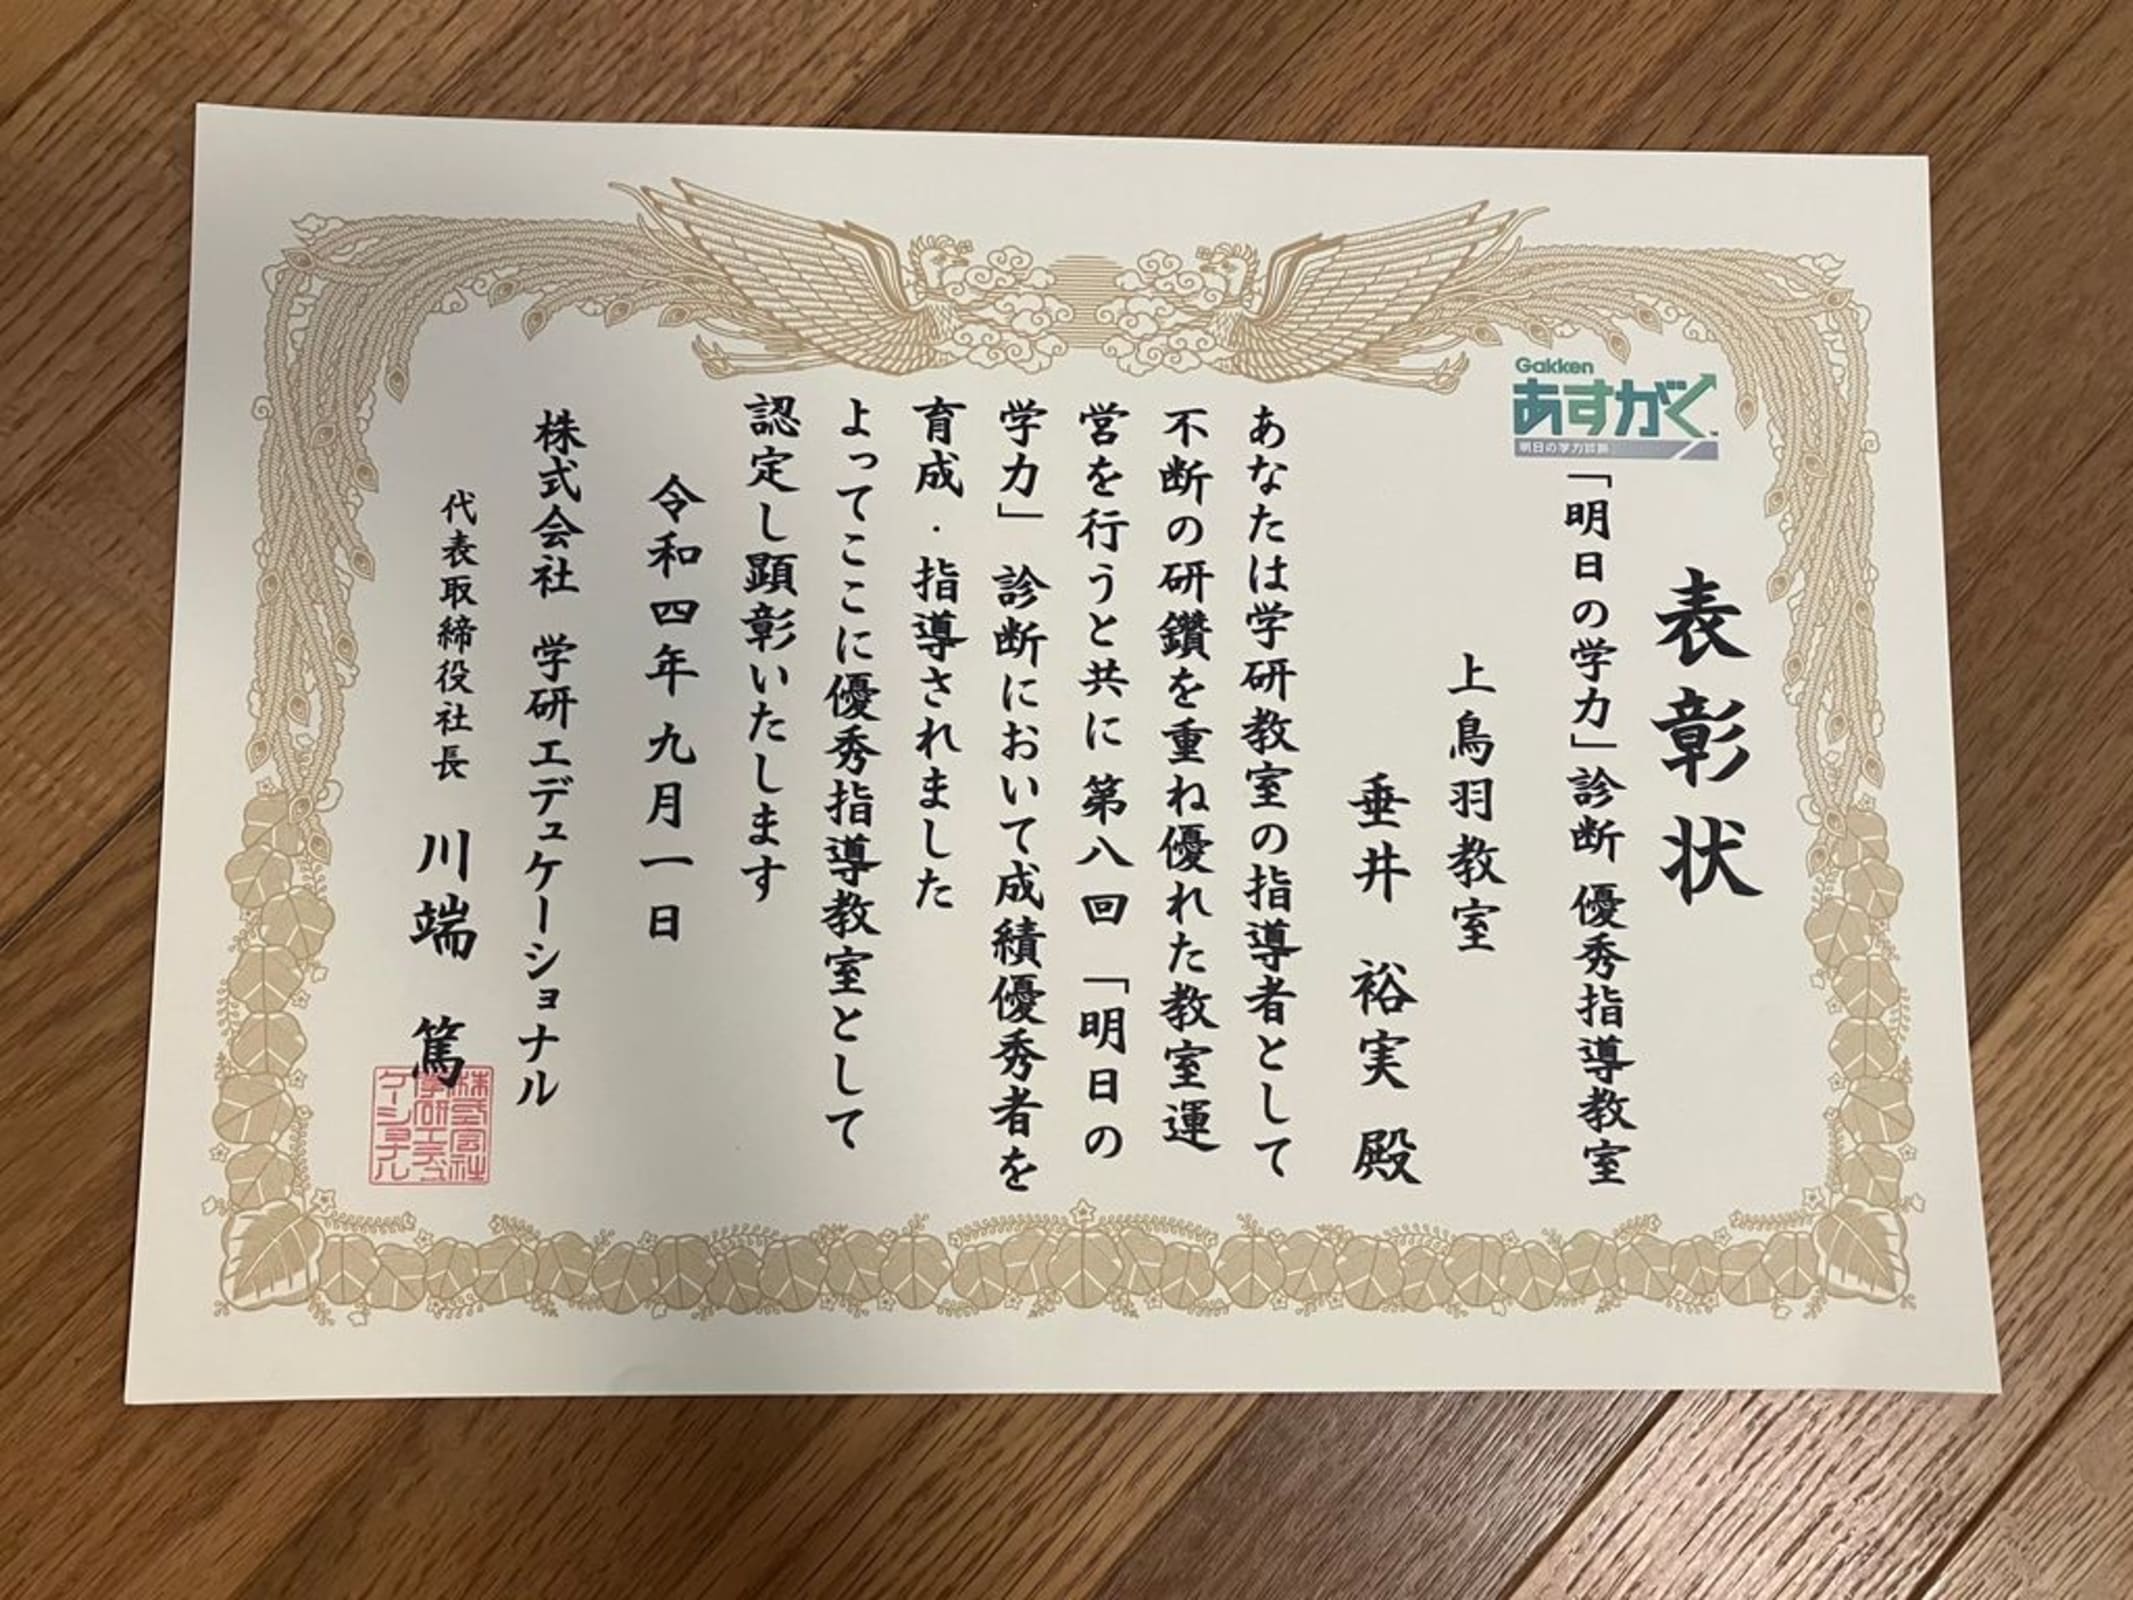 表彰状
Gakken
あすがく
明日の学力診断
「明日の学力」診断 優秀指導教室
上鳥羽教室
垂井 裕実 殿
あなたは学研教室の指導者として
不断の研鑽を重ね優れた教室運
営を行うと共に第八回「明日の
学力」診断において成績優秀者を
育成・指導されました
よってここに優秀指導教室として
認定し顕彰いたします
令和四年九月一日
株式会社 学研エデュケーショナル
代表取締役社長 川端 篤
株式会社
学研エデュ
ケーショナル